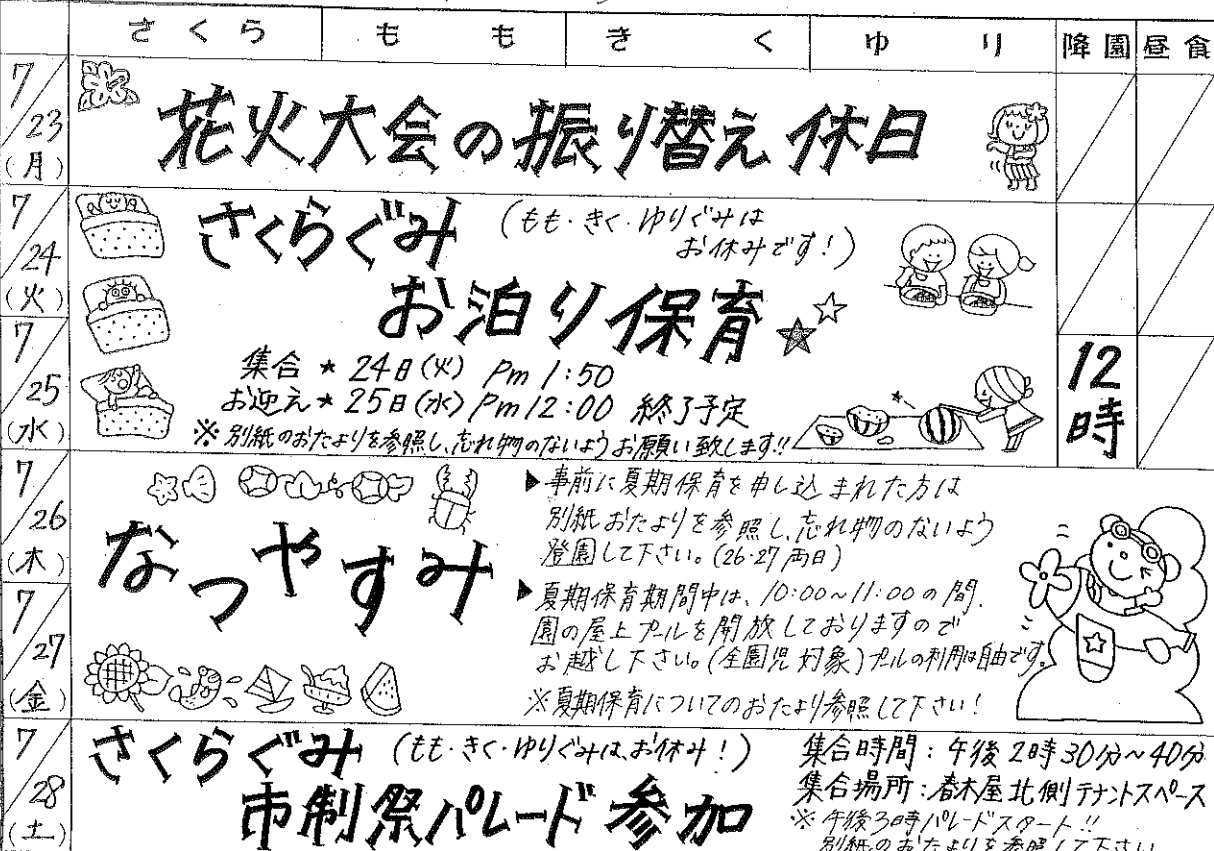 さくら もも きく ゆり 降園 昼食
7/23(月)
花火大会の振り替え休日
7/24(火)
さくらぐみ (もも・きく・ゆりぐみは
お休みです!)
お泊り保育
7/25(水)
集合 ★ 24日(火) Pm 1:50
お迎え★ 25日(水) Pm 12:00 終了予定
※別紙のおたよりを参照し、忘れ物のないようお願い致します!!
12時
7/26(木)
なつやすみ
▶事前に夏期保育を申し込まれた方は
別紙おたよりを参照し、忘れ物のないよう
登園して下さい。(26・27両日)
7/27(金)
▶夏期保育期間中は、10:00~11:00の間、
園の屋上プールを開放しておりますので
お越し下さい。(全園児対象)プールの利用は自由です。
※夏期保育についてのおたより参照して下さい!
7/28(土)
さくらぐみ (もも・きく・ゆりぐみは、お休み!)
市制祭パレード参加
集合時間:午後2時30分~40分
集合場所:春木屋北側テナントスペース
※午後3時パレードスタート!!
別紙のおたよりを参照して下さい